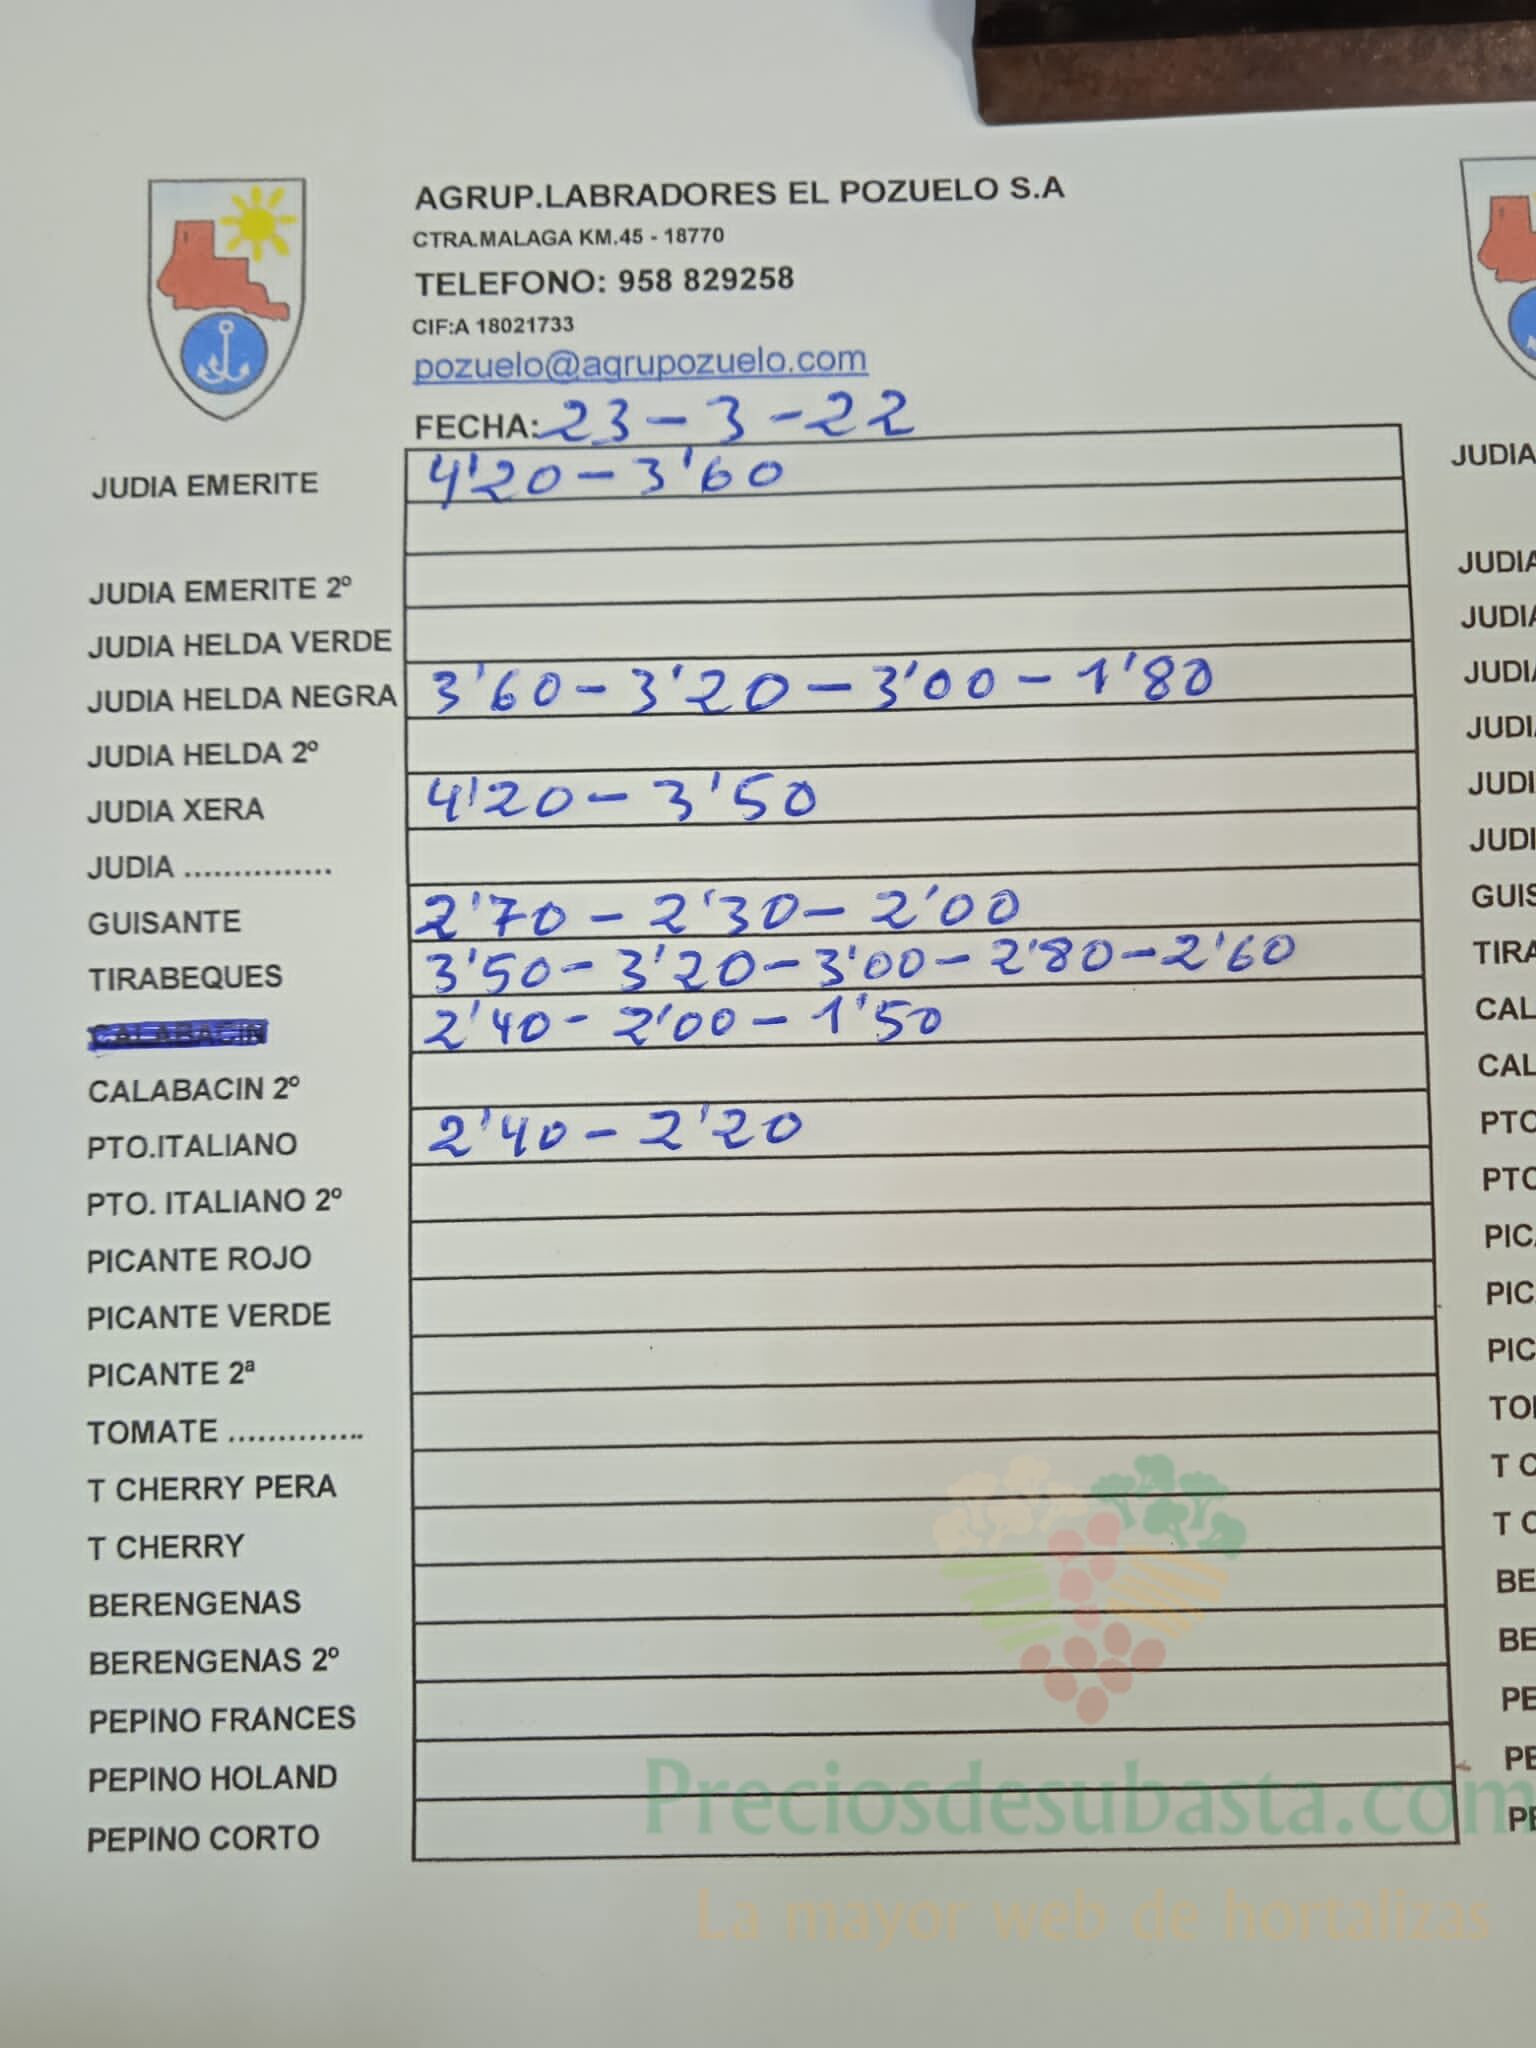 AGRUP.LABRADORES EL POZUELO S.A
CTRA.MALAGA KM.45 - 18770
TELEFONO: 958 829258
CIF:A 18021733
pozuelo@agrupozuelo.com
FECHA: 23-3-22
JUDIA EMERITE 4'20-3'60
JUDIA EMERITE 2º
JUDIA HELDA VERDE
JUDIA HELDA NEGRA 3'60-3'20-3'00-1'80
JUDIA HELDA 2º
JUDIA XERA 4'20-3'50
JUDIA ...............
GUISANTE 2'70-2'30-2'00
TIRABEQUES 3'50-3'20-3'00-2'80-2'60
CALABACIN 2'40-2'00-1'50
CALABACIN 2º
PTO.ITALIANO 2'40-2'20
PTO. ITALIANO 2º
PICANTE ROJO
PICANTE VERDE
PICANTE 2ª
TOMATE ..............
T CHERRY PERA
T CHERRY
BERENGENAS
BERENGENAS 2º
PEPINO FRANCES
PEPINO HOLAND
PEPINO CORTO
Preciosdesubasta.com
La mayor web de hortalizas
JUDIA